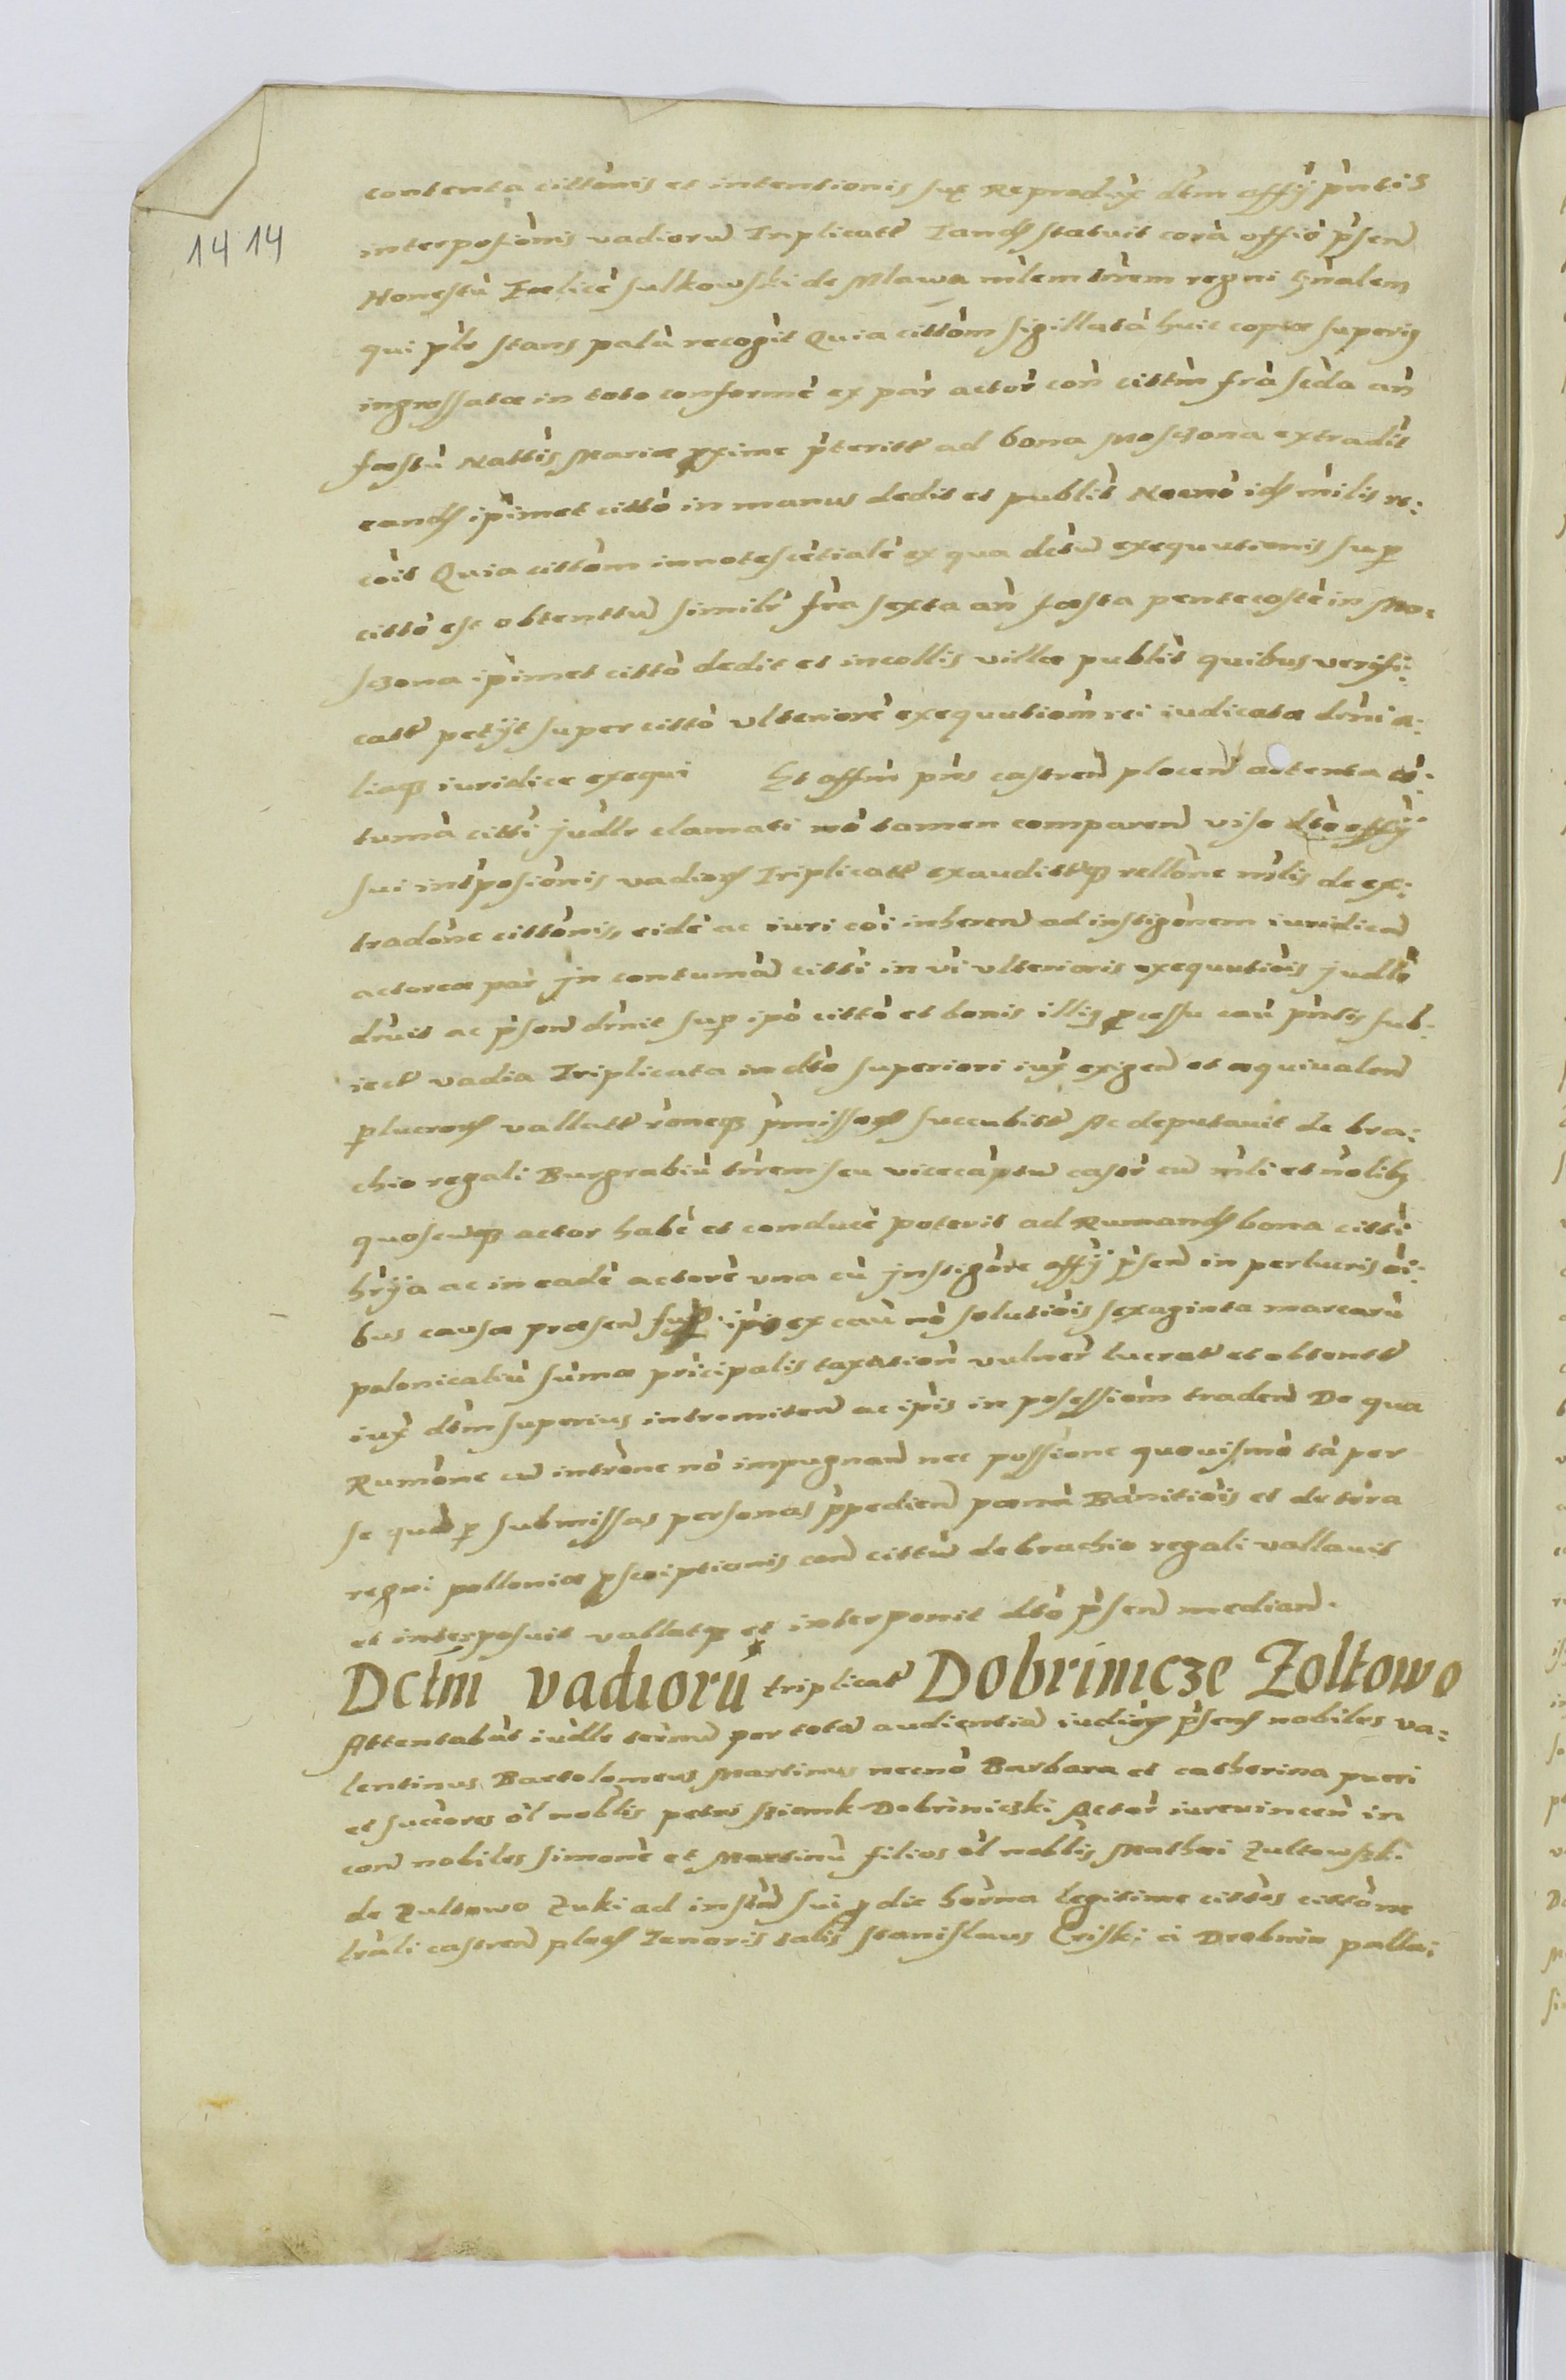 14 14
contenta cittonis et intentionis sux Reprodux dtm offy pntis
interposionis vadiorum Triplicatr Tandem statuit cora offio psen
Honestu Fœlice sulkowski de Mlawa mlem trrem regni gnalem
qui plr stans palu recogit Quia cittom sigillata huic copiæ superius
ingrossatæ in toto conforme ex par actor con cittm fra scda an
fœstu Nattis Mariæ pxime pteritr ad bona Mosczona extradit
eandem ipimet citto in manus dedit et publit Necno idem milis re:
coit Quia cittom innotescetiale ex qua dctum exequutionis sup
citto est obtenttum similr fra sexta an fœsta pentecoste in Mo:
sczona ipimet citto dedit et incollis villæ publit quibus verifi:
catr petyt super citto vlteriore exequutiom rei iudicatæ drni a:
liaque iuridice exequi Et offm pns castren plocen attenta co:
tuma citti judlr clamati no tamen comparen viso dto offy
sui intposionis vadiorum Triplicatr exaudittque rellone mlis de ex:
tradone cittonis, eide ac iuri coi inheren ad instigonem iuridicam
actoreæ par jn contuman citti in vi vlterioris exequutiois judlr
druit ac psen drnit sup ipo citto et bonis illius pcessu cau pntis sub:
iectr vadia Triplicata in dto superiori iux exigen et æquiualen
plucrorum vallatr roneque pmissorum succubittr Ac deputauit de bra:
chio regali Burgrabiu trrem seu vicecaptum castr cum mli et nolibus
quoscumque actor habe et conduce poterit ad Rumandem bona citti
hrya ac in eade actore vna cu jnstigore offy psen in perlucris oi:
bus causæ præsen sup ipis ex cau no solutiois sexaginta marcaru
polonicaliu sumæ pricipalis taxation vulner lucratr et obtenttr
iux dtm superius intromiten ac ipis in posessiom traden De qua
Rumone cum introne no impugnan nec possione quouismo ta per
se qua p submissas personas ppedien pœna Banitiois et de terra
regni polloniæ pscriptionis con cittum de brachio regali vallauit
et interposuit vallatque et interponit dto psen median.
Dctm vadioru triplicatr Dobrinicze Zoltowo
Attentabat iudlr termum per totam audientiam iudiorum psens nobiles va:
lentinus Bartolomeus Martinus necno Barbara et catherina pueri
et succores ol noblis petri sziemk Dobriniczki Actor iureuincen in
con nobiles simone et Martinu filios ol noblis Mathei Zultowski
de Zultowo Zuki ad instan sui p die horna legitime cittos cittone
lrali castren plocen Tenoris talis Stanislaus Criski ci Drobnin palla: